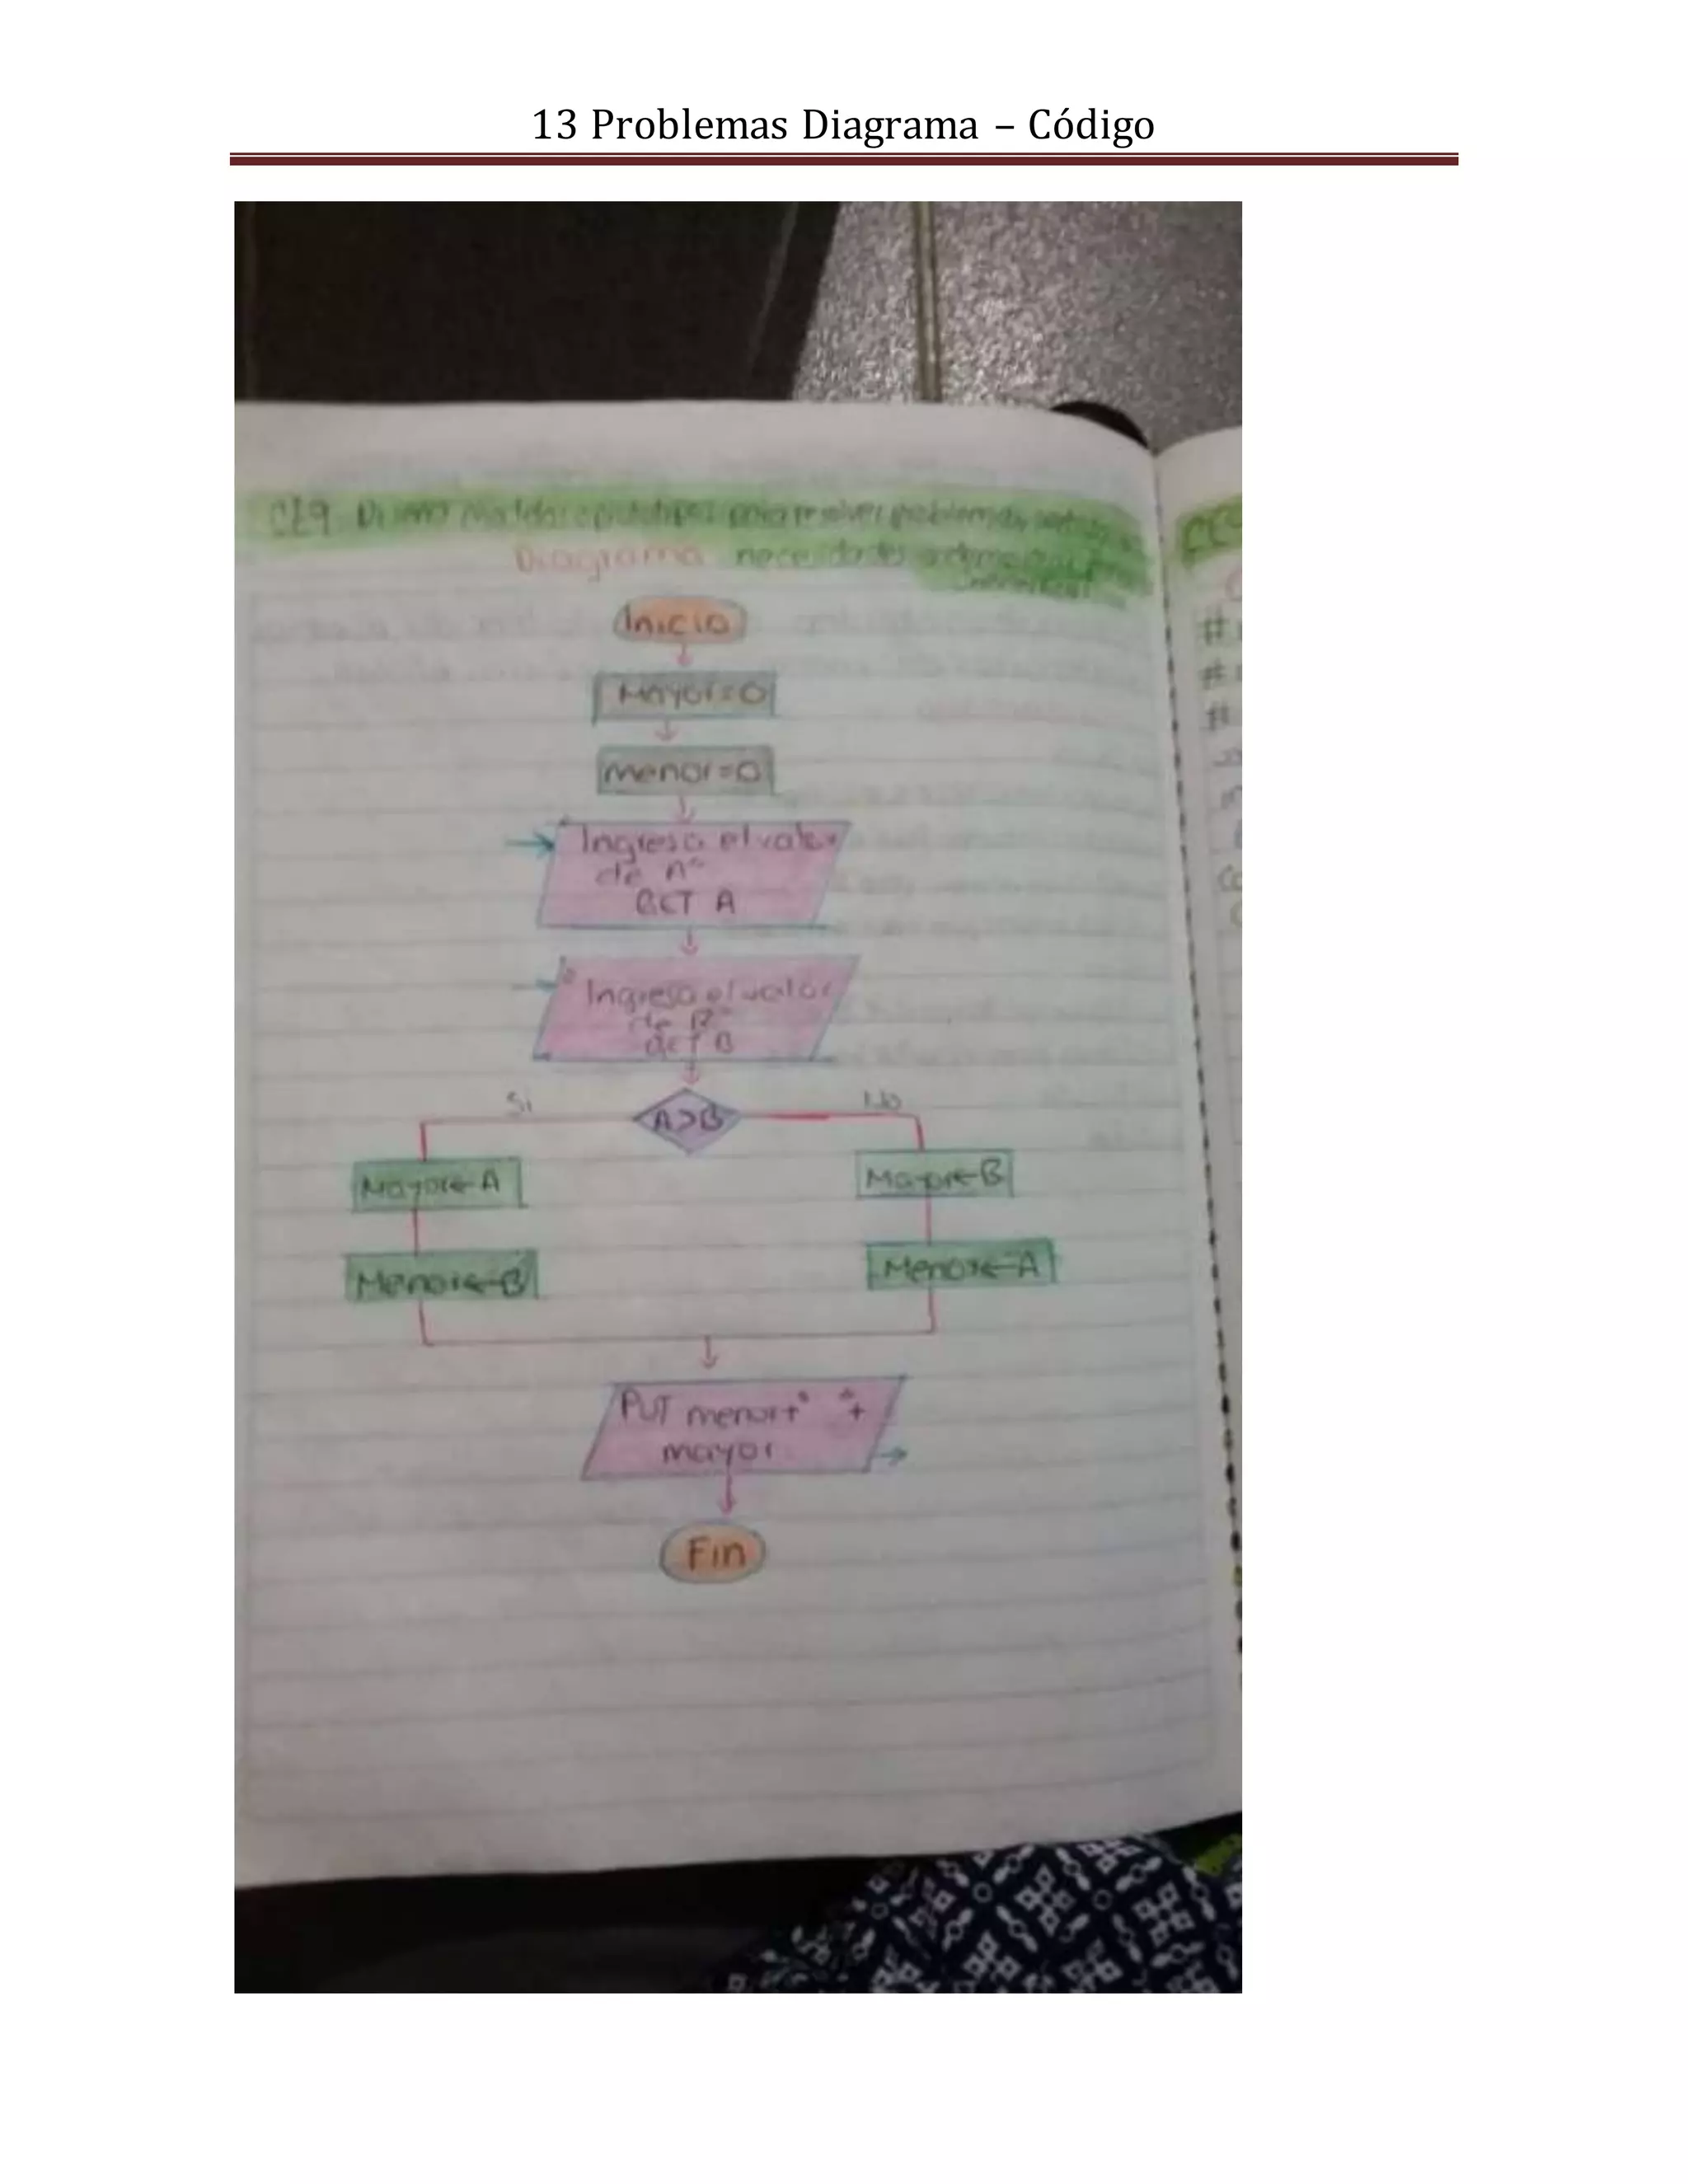 13 Problemas Diagrama – Código
CE9 problemas
Diagrama necesidades
Inicio
Mayor=0
menor=0
"Ingresa el valor
de A"
GET A
"Ingresa el valor
de B"
GET B
Si A>B No
Mayor←A Mayor←B
Menor←B Menor←A
PUT menor+" "+
mayor
Fin
#
#
#